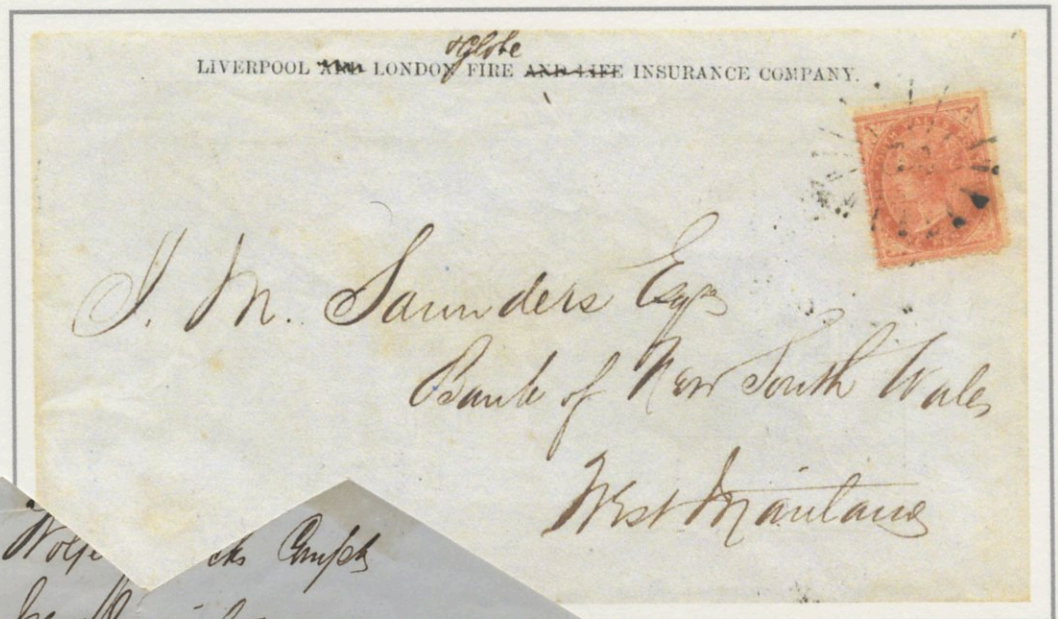 & Globe
LIVERPOOL AND LONDON FIRE AND LIFE INSURANCE COMPANY.
J. M. Saunders Esqr
Bank of New South Wales
West Maitland